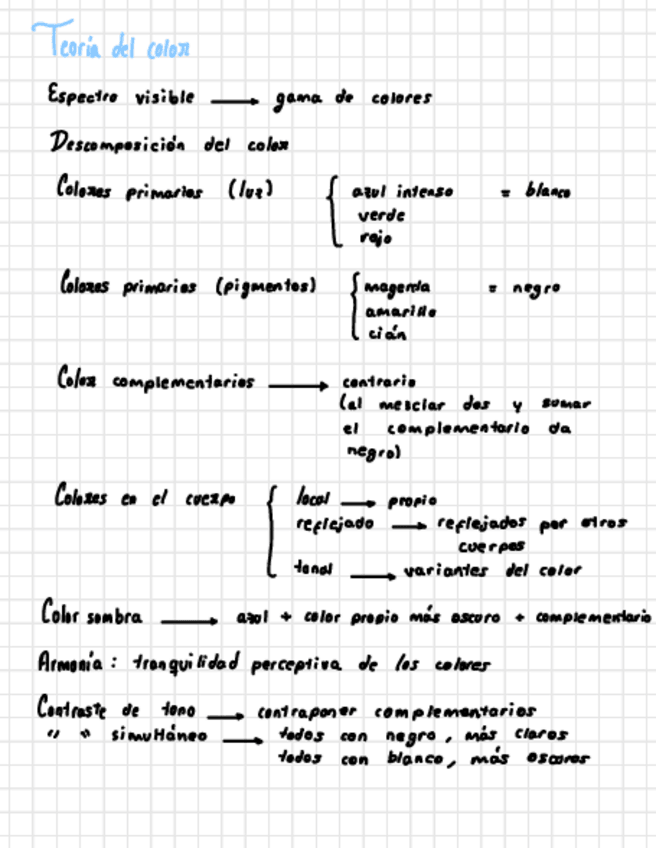 Teoría del color
Espectro visible → gama de colores
Descomposición del color
Colores primarios (luz) { azul intenso = blanco
verde
rojo
Colores primarios (pigmentos) { magenta = negro
amarillo
cián
Color complementarios → contrario
(al mezclar dos y sumar
el complementario da
negro)
Colores en el cuerpo { local → propio
reflejado → reflejados por otros
cuerpos
tonal → variantes del color
Color sombra → azul + color propio más oscuro + complementario
Armonía: tranquilidad perceptiva de los colores
Contraste de tono → contraponer complementarios
" " simultáneo → todos con negro, más claros
todos con blanco, más oscuros